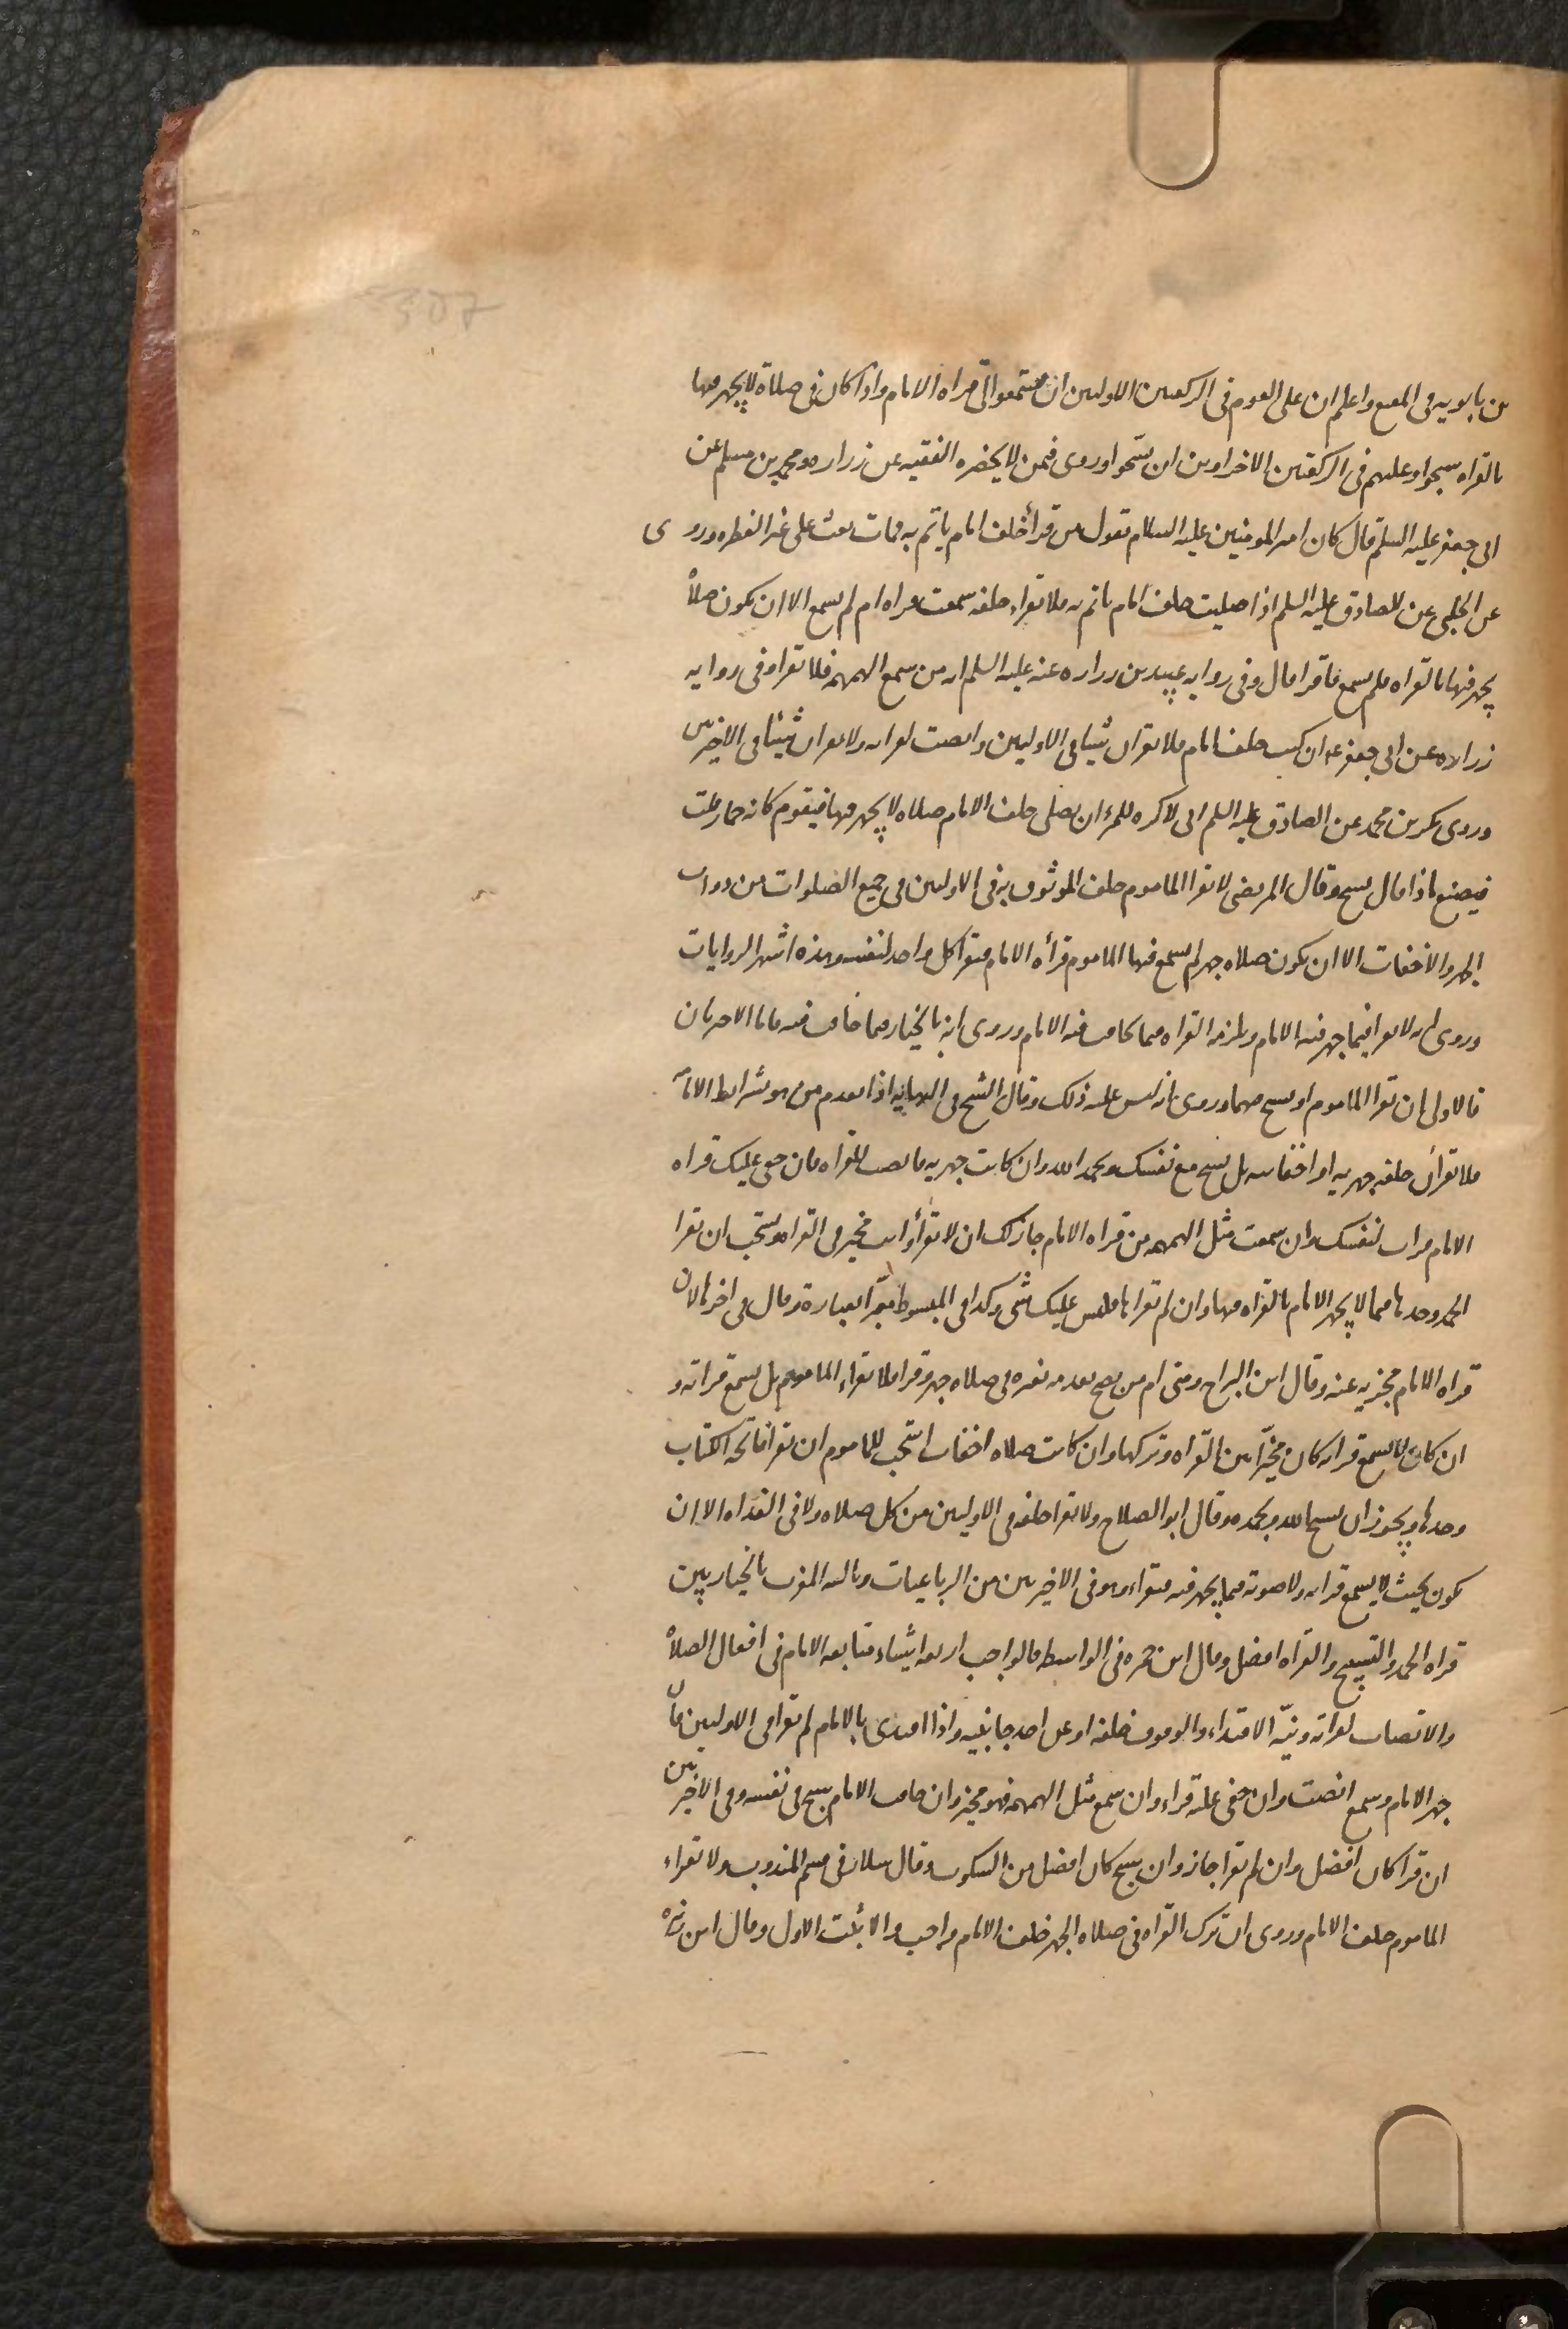 بن بابويه فى المقنع واعلم ان على القوم فى الركعتين الاوليين ان يستمعوا الى قراه الامام واذا كان فى صلاة لا يجهر فيها
بالقراه سبحوا وعليهم فى الركعتين الاخراوين ان يسبحوا وروى فى من لا يحضره الفقيه عن زراره ومحمد بن مسلم عن
ابى جعفر عليه السلم قال كان امير المومنين عليه السلام يقول من قرأ خلف امام ياتم به فمات بعث على غير الفطره وروى
عن الحلبى عن الصادق عليه السلم اذا صليت خلف امام ياتم به فلا تقراء خلفه سمعت قراه ام لم تسمع الا ان يكون صلاة
يجهر فيها بالقراه فلم تسمع فاقرا قال وفى روايه عبيد بن زراره عنه عليه السلم انه من سمع الهمهمه فلا تقرا وفى روايه
زراره عن ابى جعفر ان كنت خلف امام فلا تقران شيئا فى الاوليين وانصت لقراته ولا تقران شيئا فى الاخيرتين
وروى بكر بن محمد عن الصادق عليه السلم انى لاكره للمرء ان يصلى خلف الامام صلاه لا يجهر فيها فيقوم كانه حمار قلت
فيصنع ماذا قال يسبح وقال المرتضى لا يقرا الماموم خلف الموثوق به فى الاوليين فى جميع الصلوات من ذوات
الجهر والاخفات الا ان يكون صلاه جهر لم يسمع فيها الماموم قرأه الامام فيقرا كل واحد لنفسه وهذه اشهر الروايات
وروى انه لا يقرا فيما جهر فيه الامام ويلزمه القراه فيما خافت فيه الامام وروى انه بالخيار فيما خافت فيه فاما الاخريان
فالاولى ان يقرا الماموم او يسبح فيهما وروى انه ليس عليه ذلك وقال الشيخ فى النهايه اذا تقدم من هو بشرايط الامامه
فلا تقرأن خلفه جهريه او اخفاتيه بل تسبح مع نفسك وتحمد الله وان كانت جهريه فانصت للقراه فان خفى عليك قراه
الامام قرات لنفسك وان سمعت مثل الهمهمه من قراه الامام جاز لك ان لا تقرأ وانت مخير فى القراه ويستحب ان تقرا
الحمد وحدها فيما لا يجهر الامام بالقراه فيها وان لم تقراها فليس عليك شى وكذا فى المبسوط العبارة وقال فى اخرها لان
قراه الامام مجزيه عنه وقال ابن البراج ومتى ام من يصح تقدمه بغيره فى صلاه جهر وقرا فلا يقراء الماموم بل يسمع قراته و
ان كان لا يسمع قراته كان مخيّرا بين القراه وتركها وان كانت صلاه اخفات استحب للماموم ان يقرا فاتحه الكتاب
وحدها ويجوز ان يسبح الله ويحمده وقال ابو الصلاح ولا يقرا خلفه فى الاوليين من كل صلاه ولا فى الغداه الا ان
يكون بحيث لا يسمع قراته ولا صوته فيما يجهر فيه فيقراء وهو فى الاخيرتين من الرباعيات وثالثه المغرب بالخيار بين
قراه الحمد والتسبيح والقراه افضل وقال ابن حمزه فى الواسطه فالواجب اربعه اشياء متابعه الامام فى افعال الصلاة
والانصات لقراته ونيّه الاقتداء والوقوف خلفه او عن احد جانبيه واذا اقتدى بالامام لم يقرا فى الاوليين فان
جهر الامام وسمع انصت وان خفى عليه قراء وان سمع مثل الهمهمه فهو مخير وان خافت الامام يسبح فى نفسه وفى الاخيرتين
ان قرا كان افضل وان لم يقرا جاز وان سبح كان افضل من السكوت وقال سلار فى قسم المندوب ولا يقراء
الماموم خلف الامام وروى ان ترك القراه فى صلاه الجهر خلف الامام واجب والاثبت الاول وقال ابن زهره